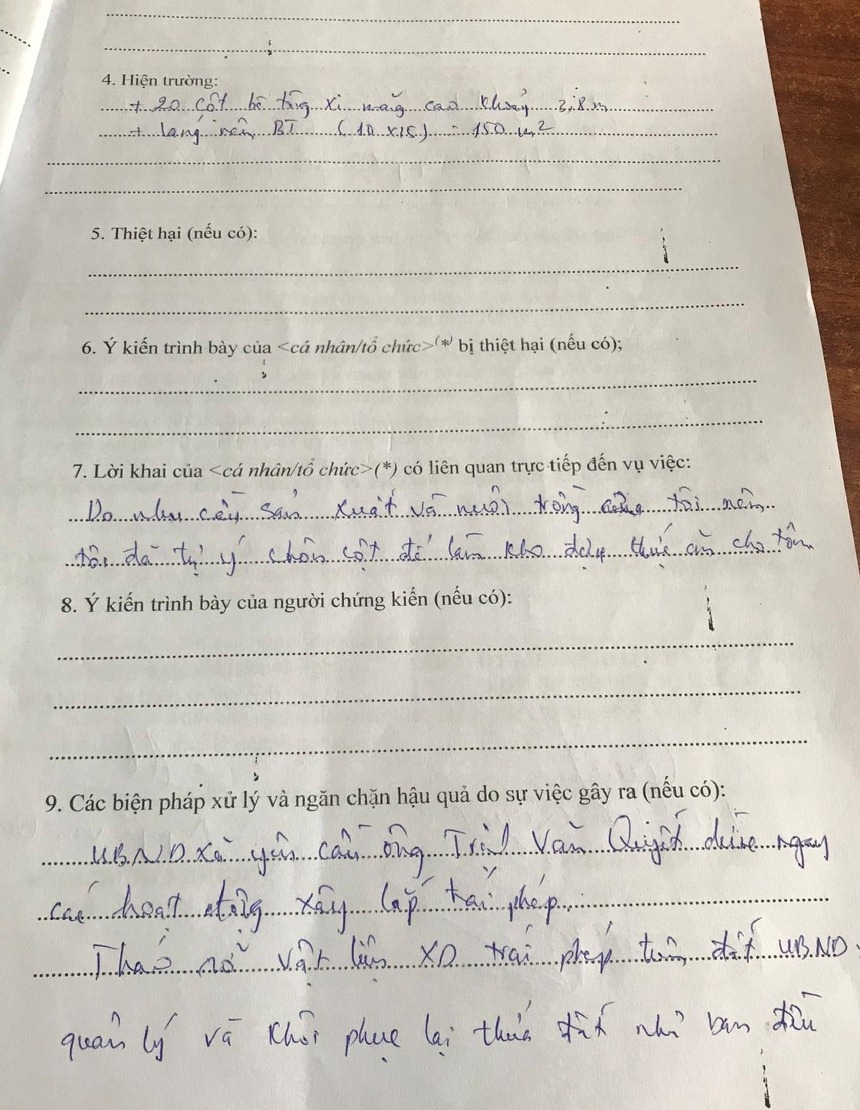 4. Hiện trường:
+ 20 cột bê tông xi măng cao khoảng 3,8 m
+ láng nền BT (10 x 15) = 150 m2
5. Thiệt hại (nếu có):
6. Ý kiến trình bày của <cá nhân/tổ chức>(*) bị thiệt hại (nếu có);
7. Lời khai của <cá nhân/tổ chức>(*) có liên quan trực tiếp đến vụ việc:
Do nhu cầu sản xuất và nuôi trồng của tôi nên
tôi đã tự ý chôn cột để làm kho đựng thức ăn cho tôm
8. Ý kiến trình bày của người chứng kiến (nếu có):
9. Các biện pháp xử lý và ngăn chặn hậu quả do sự việc gây ra (nếu có):
UBND xã yêu cầu ông Trịnh Văn Quyết dừng ngay
các hoạt động xây lắp trái phép.
Tháo rỡ vật liệu XD trái phép trên đất UBND
quản lý và khôi phục lại thửa đất như ban đầu